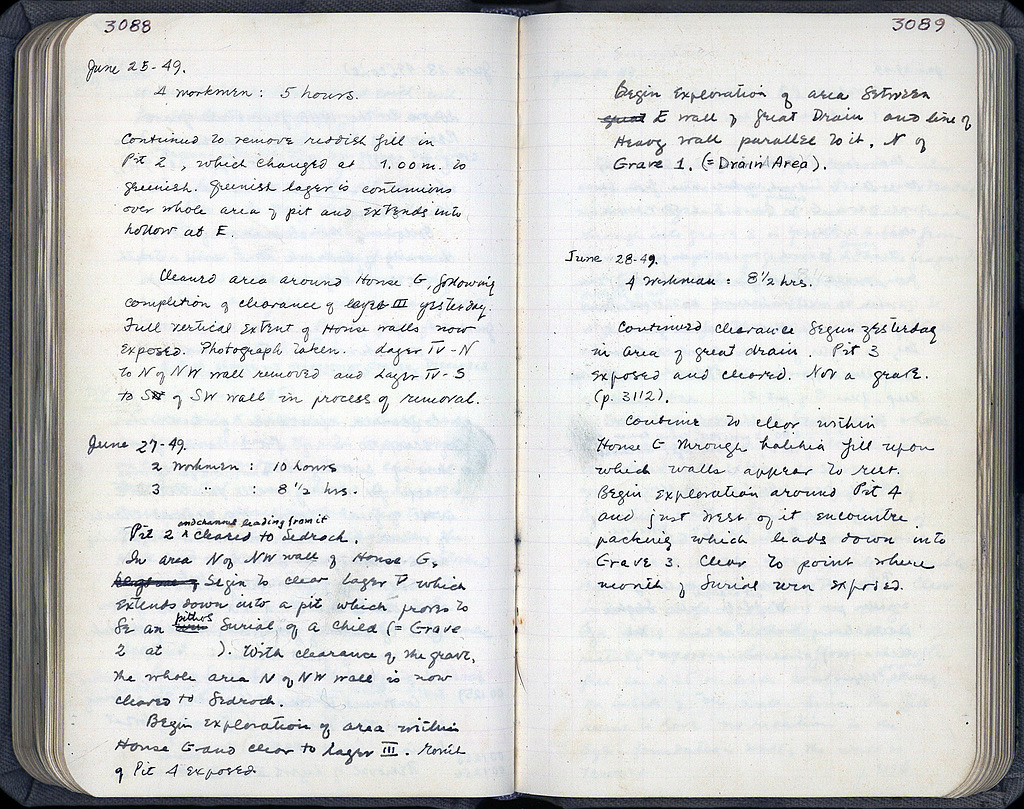 3088
June 25-49.
4 workmen : 5 hours.
Continued to remove reddish fill in
Pit 2, which changed at 1.00 m. to
greenish. Greenish layer is continuous
over whole area of pit and extends into
hollow at E.
Cleaned area around House G, following
completion of clearance of layer III yesterday.
Full vertical extent of House walls now
exposed. Photograph taken. Layer IV-N
to N of NW wall removed and Layer IV-S
to S of SW wall in process of removal.
June 27-49.
2 workmen : 10 hours
3 " : 8 1/2 hrs.
and channel leading from it
Pit 2 ^ cleared to bedrock.
In area N of NW wall of House G,
begin to clear layer V which
extends down into a pit which proves to
pithos
be an burial of a child (= Grave
2 at ). With clearance of the grave,
the whole area N of NW wall is now
cleared to bedrock.
Begin exploration of area within
House G and clear to layer III. Mouth
of Pit 4 exposed.
3089
Begin exploration of area between
E wall of Great Drain and line of
Heavy wall parallel to it, N of
Grave 1. (= Drain Area).
June 28-49.
4 workmen : 8 1/2 hrs.
Continued clearance begun yesterday
in area of great drain. Pit 3
exposed and cleared. Not a grave.
(p. 3112).
Continue to clear within
House G through halikia fill upon
which walls appear to rest.
Begin exploration around Pit 4
and just West of it encounter
packing which leads down into
Grave 3. Clear to point where
mouth of burial urn exposed.